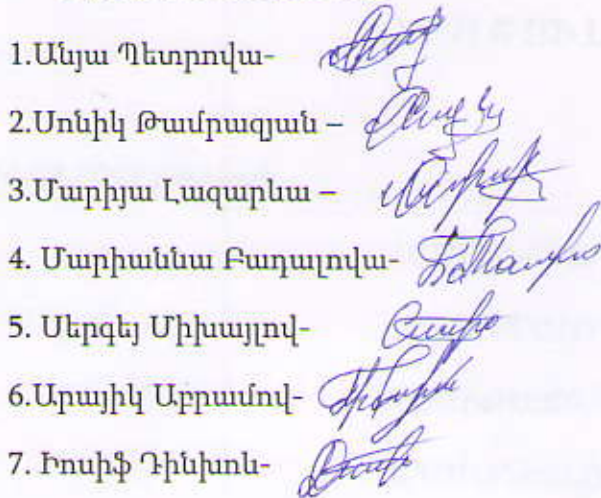 1.Անյա Պետրովա-
2.Սոնիկ Թամրազյան –
3.Մարիյա Լազարևա –
4. Մարիաննա Բադալովա-
5. Սերգեյ Միխայլով-
6.Արայիկ Աբրամով-
7. Իոսիֆ Դինխոև-